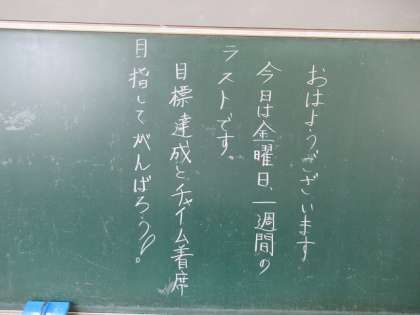 おはようございます
今日は金曜日、一週間の
ラストです。
目標達成とチャイム着席
目指してがんばろう!。